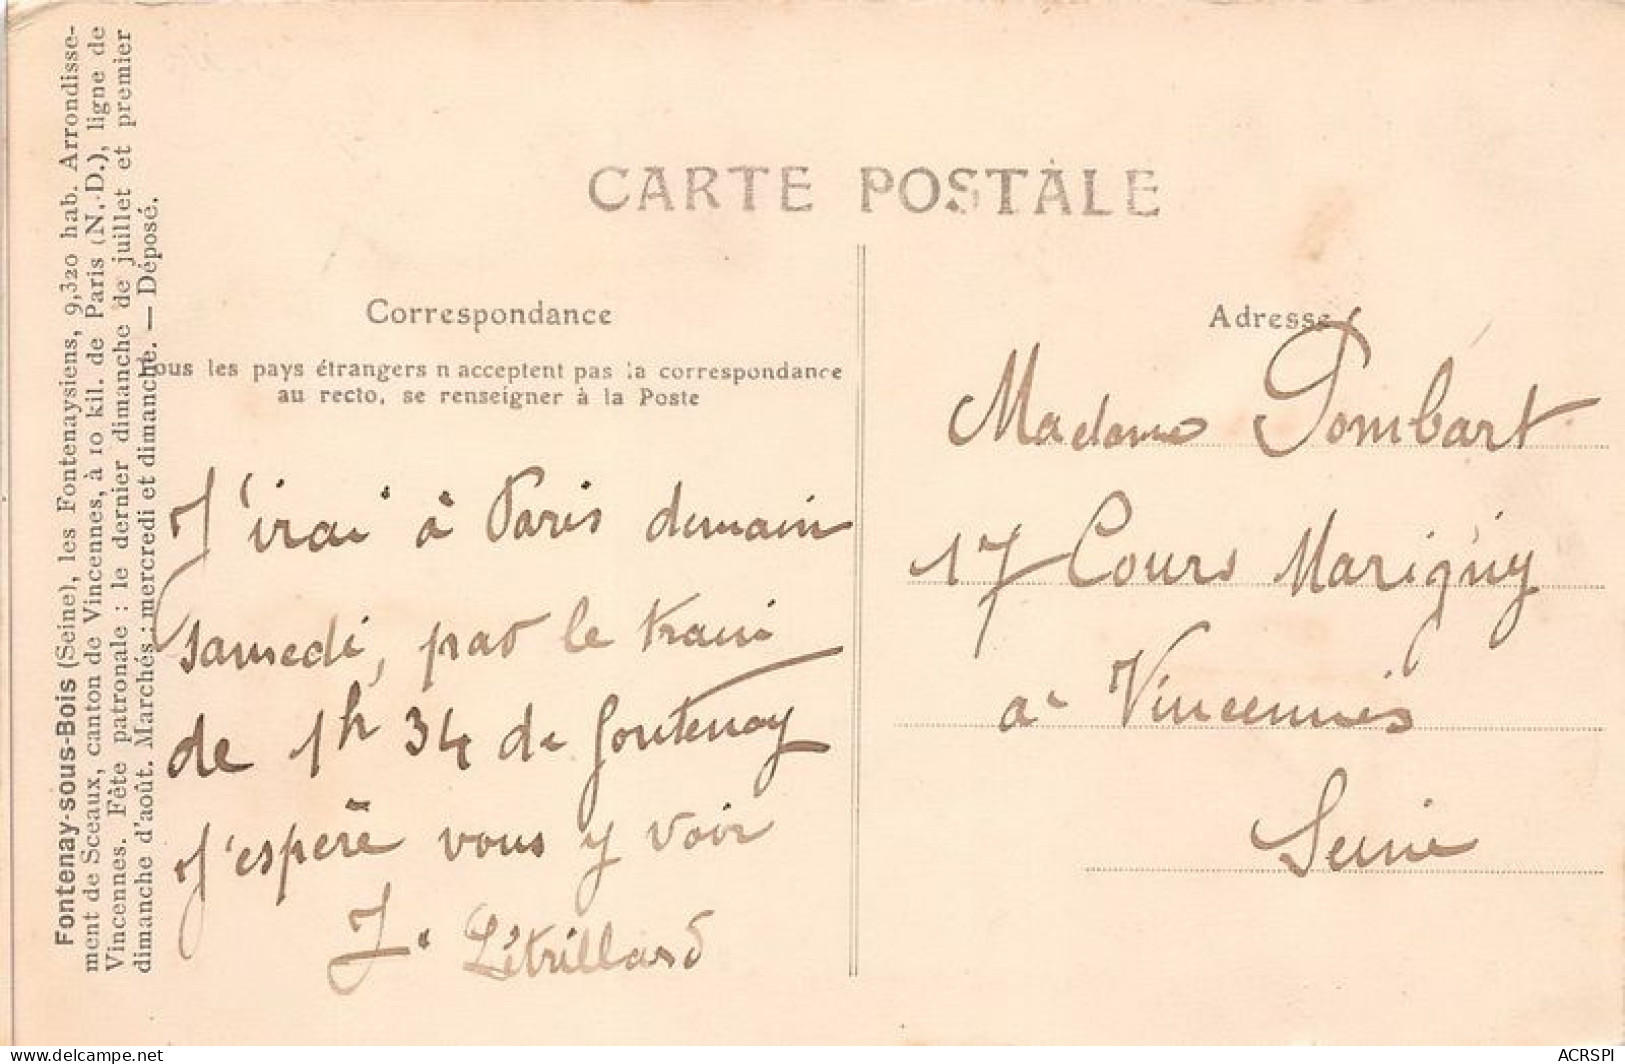 Fontenay-sous-Bois (Seine), les Fontenaysiens, 9,320 hab. Arrondisse-
ment de Sceaux, canton de Vincennes, à 10 kil. de Paris (N.-D.), ligne de
Vincennes. Fête patronale : le dernier dimanche de juillet et premier
dimanche d'août. Marchés : mercredi et dimanche. — Déposé.
CARTE POSTALE
Correspondance
Tous les pays étrangers n'acceptent pas la correspondance
au recto, se renseigner à la Poste
J'irai à Paris demain
samedi, par le train
de 1h 34 de Fontenay
J'espère vous y voir
J. Létrillard
Adresse
Madame Pombart
17 Cours Marigny
à Vincennes
Seine
delcampe.net
ACRSPI